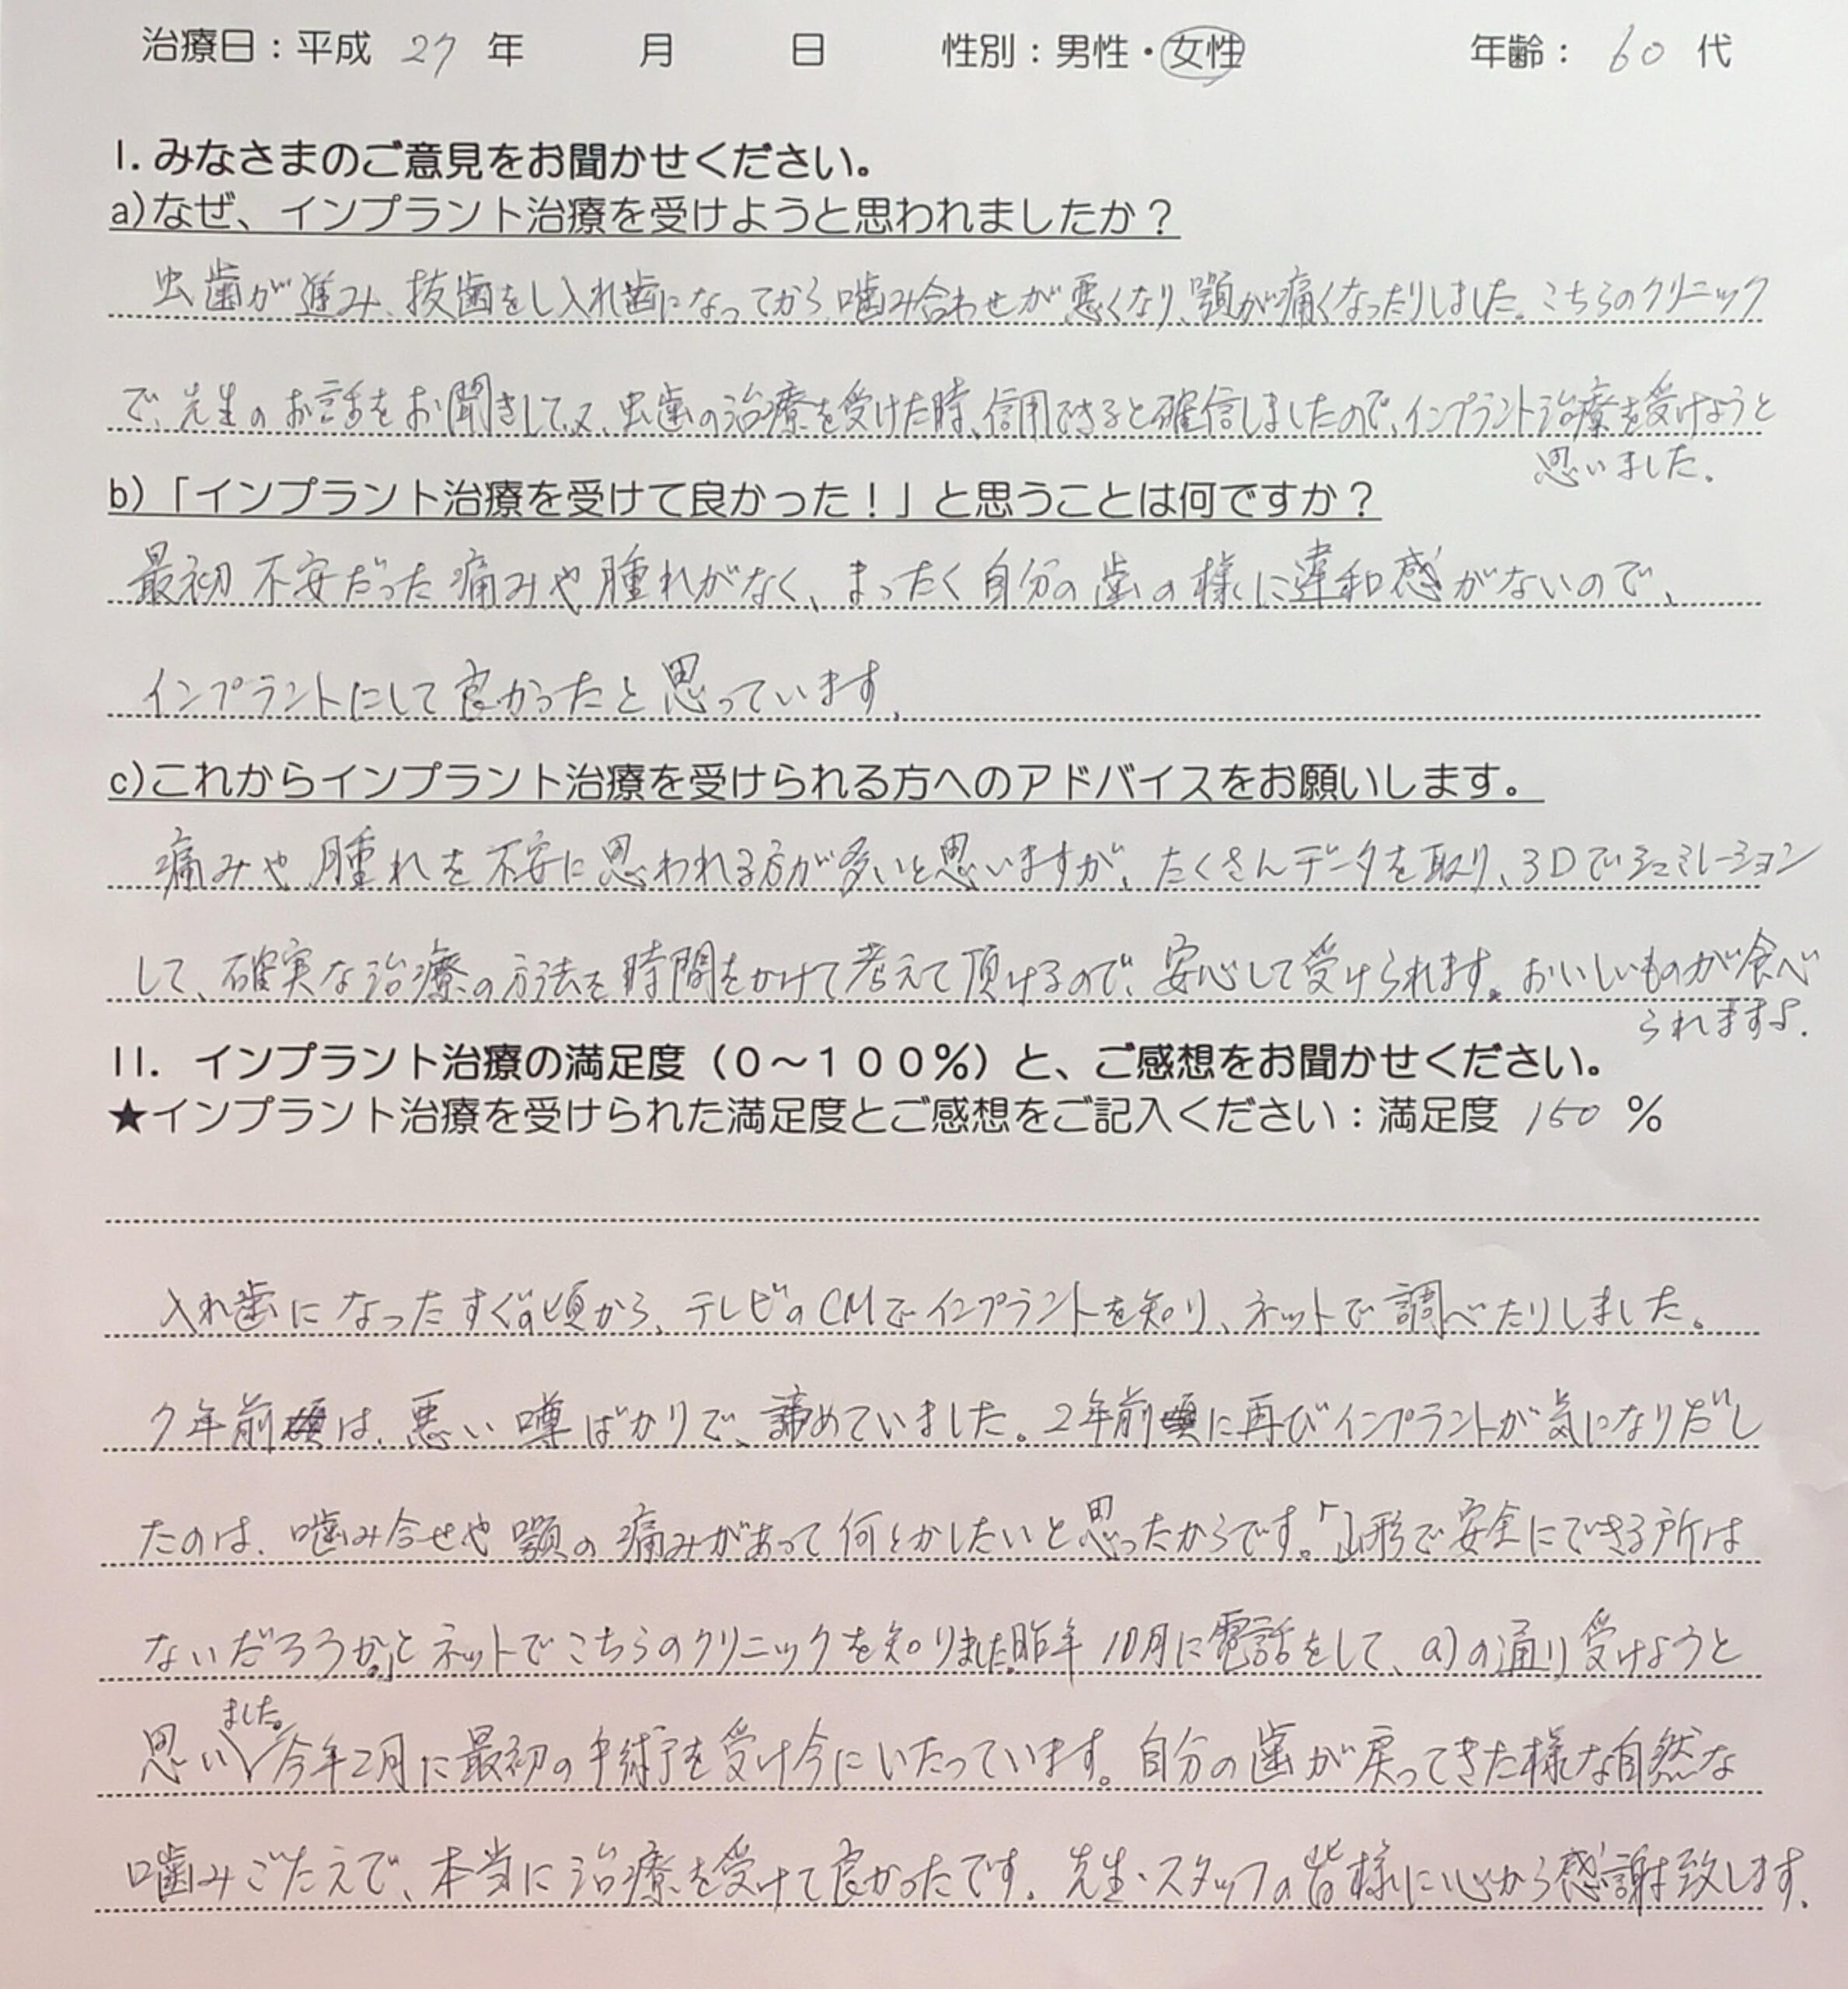 治療日：平成 27 年　　月　　日　　性別：男性・女性　　年齢： 60 代
I. みなさまのご意見をお聞かせください。
a)なぜ、インプラント治療を受けようと思われましたか？
虫歯が進み、抜歯をし入れ歯になってから噛み合わせが悪くなり、顎が痛くなったりしました。こちらのクリニック
で、先生のお話をお聞きして、又、虫歯の治療を受けた時、信用できると確信しましたので、インプラント治療を受けようと
思いました。
b)「インプラント治療を受けて良かった！」と思うことは何ですか？
最初不安だった痛みや腫れがなく、まったく自分の歯の様に違和感がないので、
インプラントにして良かったと思っています。
c)これからインプラント治療を受けられる方へのアドバイスをお願いします。
痛みや腫れを不安に思われる方が多いと思いますが、たくさんデータを取り、3Dでシュミレーション
して、確実な治療の方法を時間をかけて考えて頂けるので、安心して受けられます。おいしいものが食べ
られますよ。
II. インプラント治療の満足度（０～１００％）と、ご感想をお聞かせください。
★インプラント治療を受けられた満足度とご感想をご記入ください：満足度 150 ％
入れ歯になったすぐの頃から、テレビのCMでインプラントを知り、ネットで調べたりしました。
7年前頃は、悪い噂ばかりで、諦めていました。2年前頃に再びインプラントが気になりだし
たのは、噛み合せや顎の痛みがあって何とかしたいと思ったからです。「山形で安全にできる所は
ないだろうか。」とネットでこちらのクリニックを知りました。昨年10月に電話をして、a)の通り受けようと
思いました。今年2月に最初の手術を受け今にいたっています。自分の歯が戻ってきた様な自然な
噛みごたえで、本当に治療を受けて良かったです。先生・スタッフの皆様に心から感謝致します。